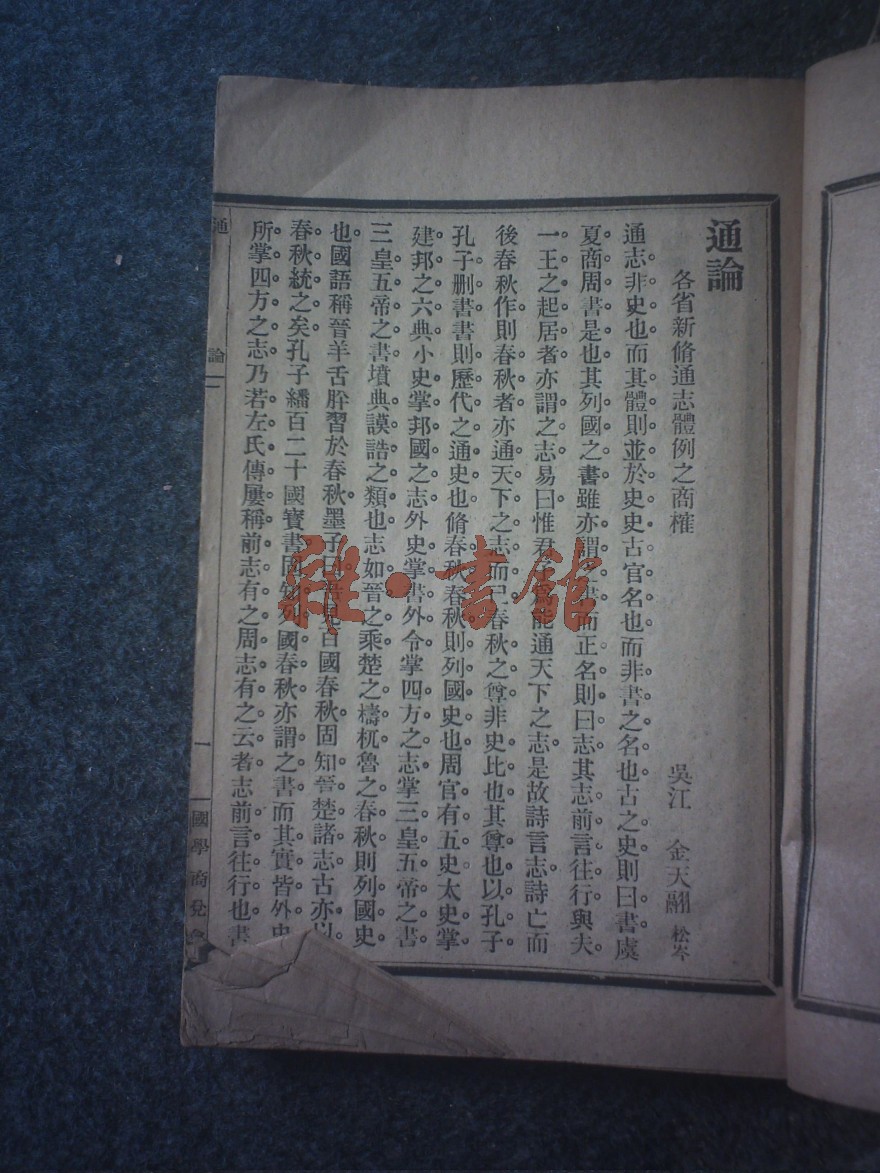 通論
各省新脩通志體例之商榷
吳江 金天翮 松岑
通志非史也而其體則並於史史古官名也而非書之名也古之史則曰書虞
夏商周書是也其列國之書雖亦謂之書而正名則曰志其志前言往行與夫
一王之起居者亦謂之志易曰惟君子爲能通天下之志是故詩言志詩亡而
後春秋作則春秋者亦通天下之志而已春秋之尊非史比也其尊也以孔子
孔子删書書則歷代之通史也脩春秋春秋則列國史也周官有五史太史掌
建邦之六典小史掌邦國之志外史掌書外令掌四方之志掌三皇五帝之書
三皇五帝之書墳典謨誥之類也志如晉之乘楚之檮杌魯之春秋則列國史
也國語稱晉羊舌肸習於春秋墨子曰吾見百國春秋固知晉楚諸志古亦以
春秋統之矣孔子繙百二十國寶書固知列國春秋亦謂之書而其實皆外史
所掌四方之志乃若左氏傳屢稱前志有之周志有之云者志前言往行也書
通 論
一
國學商兌會
雅·書館